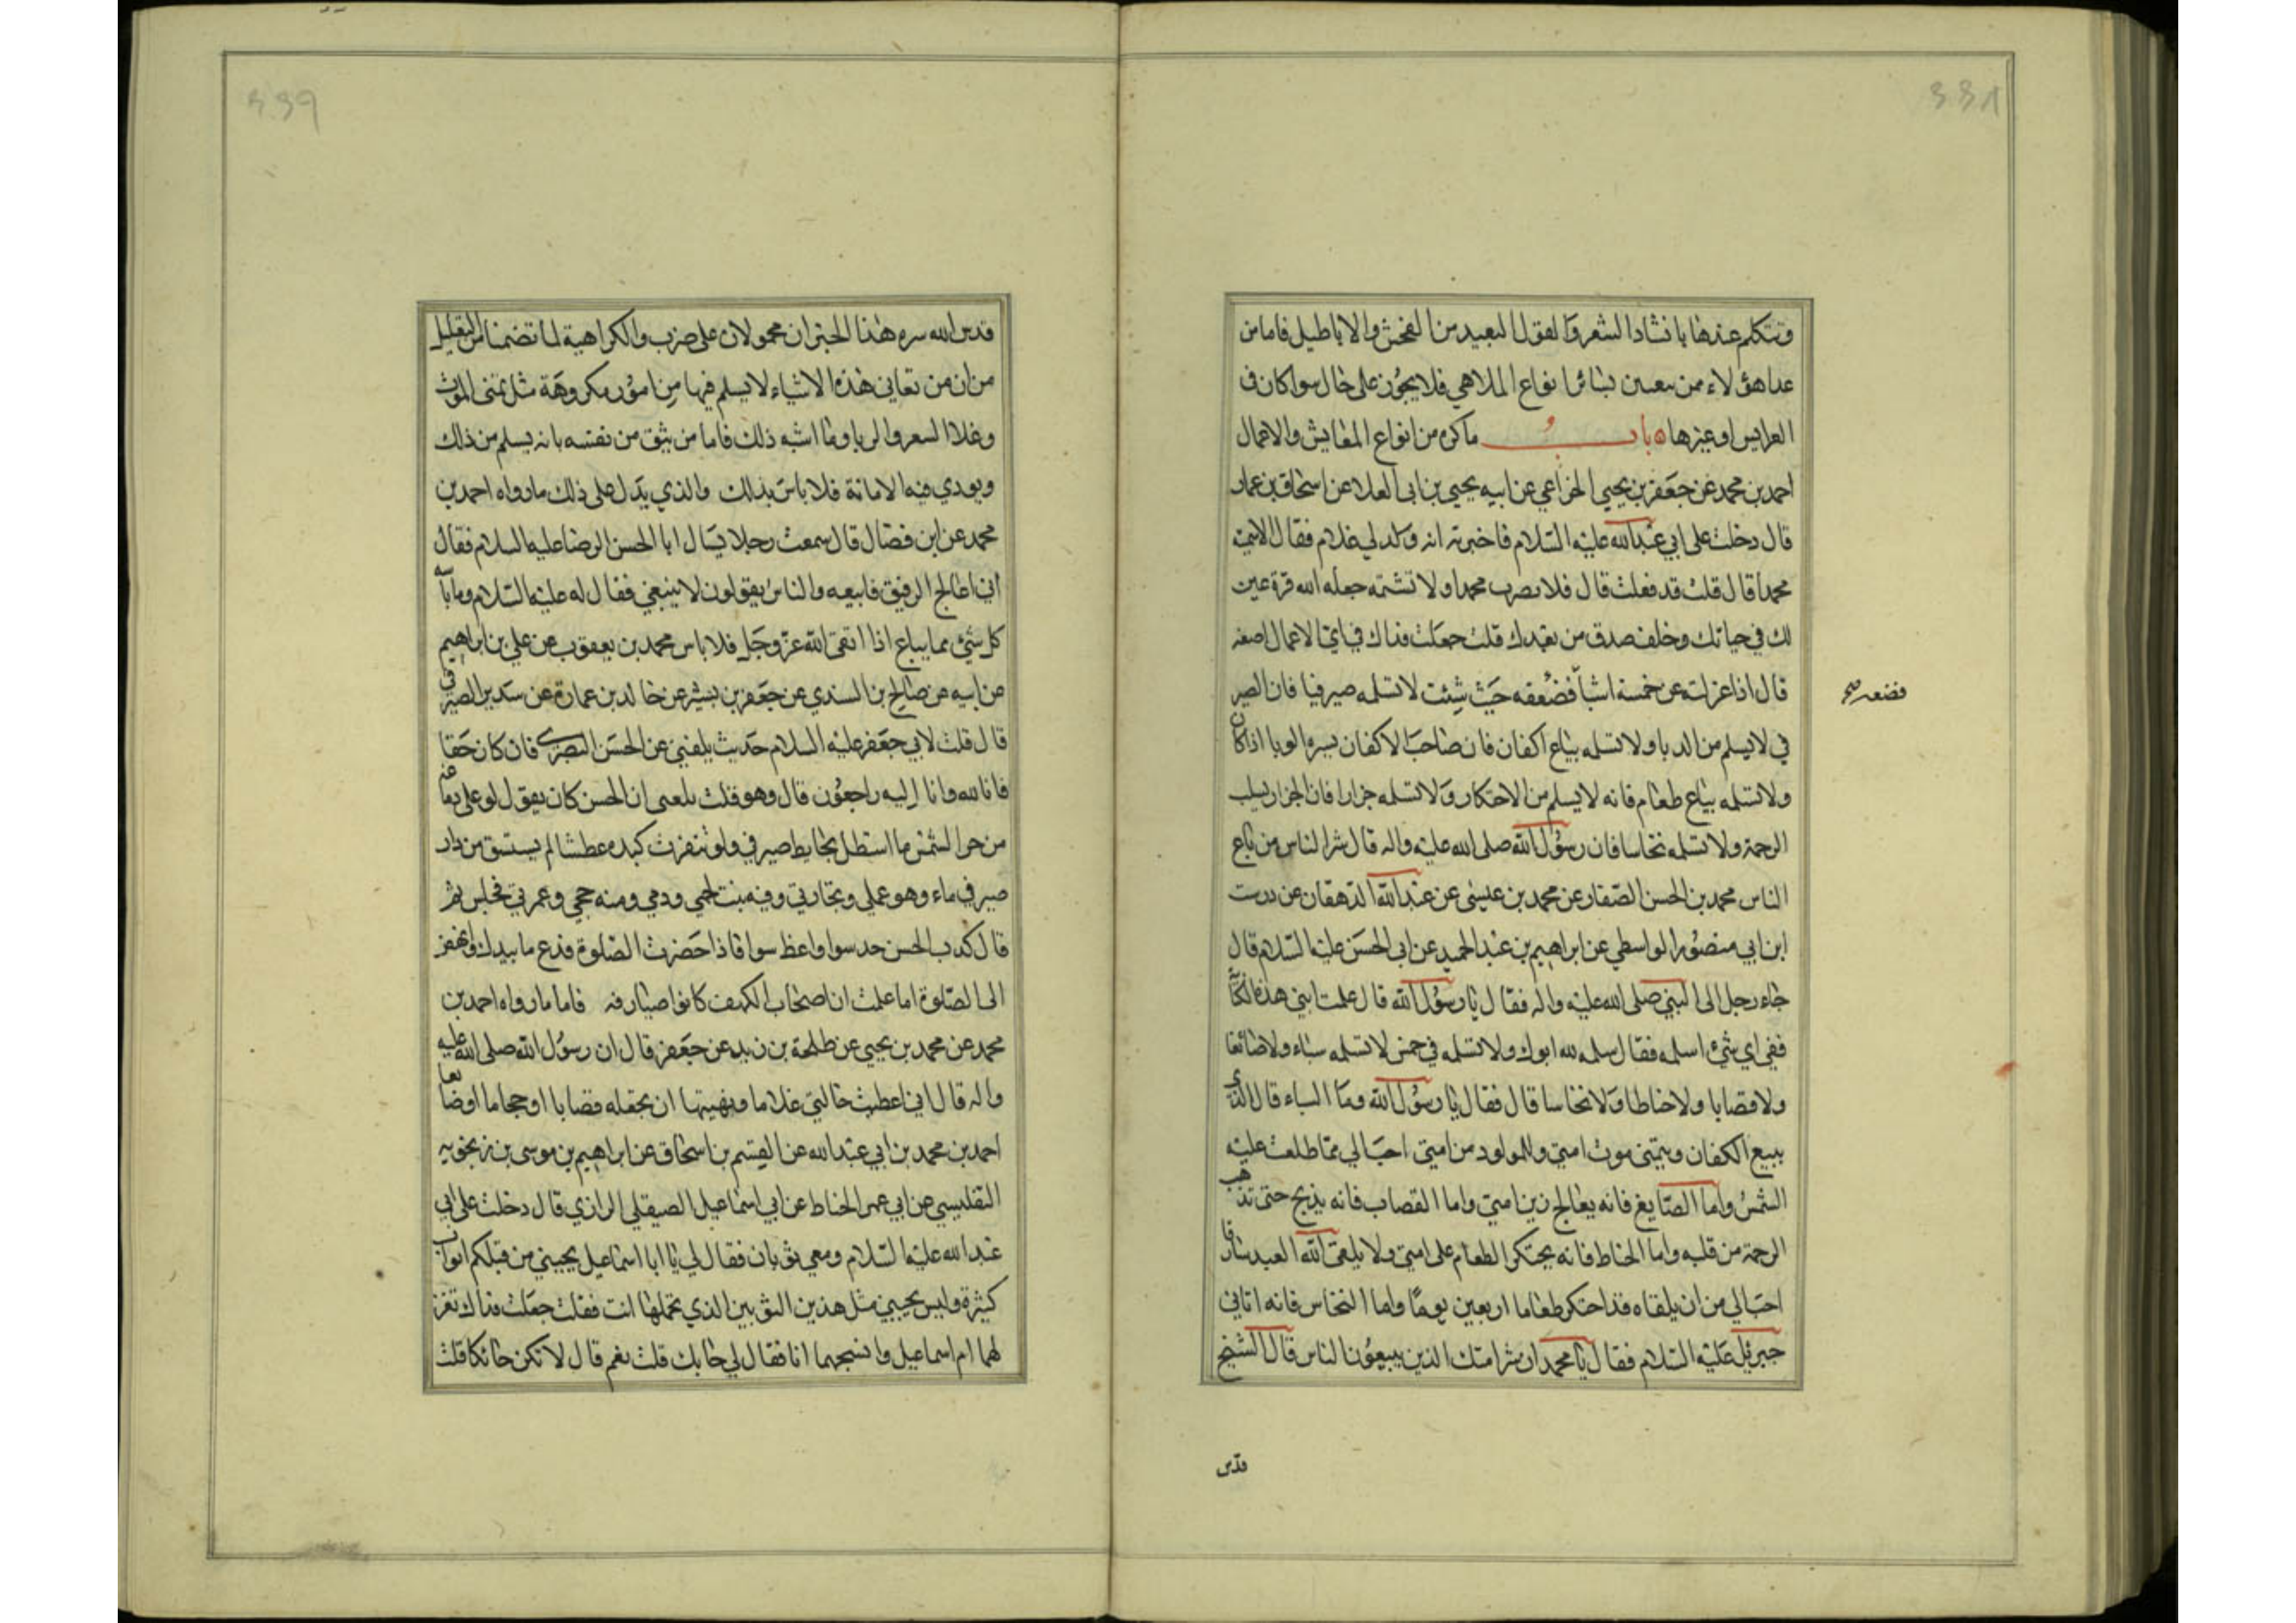 وتتكلم عندها بانشاد الشعر والقول البعيد من الفحش والاباطيل فاما من
عدا هؤلاء ممن سعين بسائر انواع الملاهي فلا يجوز على حال سوا كان في
العرايس او غيرها باب ما كره من انواع المعايش والاعمال
احمد بن محمد عن جعفر بن يحيى الخزاعي عن ابيه يحيى بن ابي العلا عن اسحاق بن عمار
قال دخلت على ابي عبدالله عليه السلام فاخبرته انه ولد لي غلام فقال الا سميته
محمدا قال قلت قد فعلت قال فلا تضرب محمدا ولا تشتمه جعله الله قرة عين
لك في حياتك وخلف صدق من بعدك قلت جعلت فداك في اي الاعمال اضعه
قال اذا عزلته عن خمسة اشيا فضعفه حيث شئت لا تسلمه صيرفيا فان الصير
فضعه صح
في لا يسلم من الربا ولا تسلمه بياع اكفان فان صاحب الاكفان يسره الوبا اذا كان
ولا تسلمه بياع طعام فانه لا يسلم من الاحتكار ولا تسلمه جزارا فان الجزار يسلب
الرحمة ولا تسلمه نخاسا فان رسول الله صلى الله عليه واله قال شر الناس من باع
الناس محمد بن الحسن الصفار عن محمد بن عيسى عن عبدالله الدهقان عن درست
ابن ابي منصور الواسطي عن ابراهيم بن عبد الحميد عن ابي الحسن عليه السلام قال
جاء رجل الى النبي صلى الله عليه واله فقال يا رسول الله قال علمت ابني هذه الكتابة
ففي اي شيء اسلمه فقال سلمه لله ابوك ولا تسلمه في خمس لا تسلمه سباء ولا صائغا
ولا قصابا ولا حناطا ولا نخاسا قال فقال يا رسول الله وما السباء قال الذي
يبيع الكفان ويتمنى موت امتي وللمولود من امتي احب الي مما طلعت عليه
الشمس واما الصايغ فانه يعالج زين امتي واما القصاب فانه يذبح حتى تذهب
الرحمة من قلبه واما الحناط فانه يحتكر الطعام على امتي ولا يلقى الله العبد سارقا
احب الي من ان يلقاه قد احتكر طعاما اربعين يوما واما النخاس فانه اتاني
جبرئيل عليه السلام فقال يا محمد ان شر امتك الذين يبيعون الناس قال الشيخ
قدس
قدس الله سره هذا الخبران محمولان على ضرب والكراهية لما تضمنا من التعليل
من ان من تعاني هذه الاشياء لا يسلم فيها من امور مكروهة مثل تمنى الموت
وغلاا السعر والربا وما اشبه ذلك فاما من يثق من نفسه بانه يسلم من ذلك
ويودي فيه الامانة فلا باس بذلك والذي يدل على ذلك ما رواه احمد بن
محمد عن ابن فضال قال سمعت رجلا يسال ابا الحسن الرضا عليه السلام فقال
اني اعالج الرقيق فابيعه والناس يقولون لا ينبغي فقال له عليه السلام وما باسه
كل شيء مما يباع اذا اتقى الله عز وجل فلا باس محمد بن يعقوب عن علي بن ابراهيم
عن ابيه عن صالح بن السندي عن جعفر بن بشير عن خالد بن عمارة عن سدير الصيرفي
قال قلت لابي جعفر عليه السلام حديث بلغني عن الحسن البصري فان كان حقا
فانا لله وانا اليه راجعون قال وهو قلت بلغني ان الحسن كان يقول لو غلى دماغه
من حر الشمس ما استظل بحايط صيرفي ولو تنفرت كبده عطشا لم يستسق من دار
صيرفي ماء وهو عملي وتجارتي وفيه نبت لحمي ودمي ومنه حجي وعمرتي فجلس ثم
قال كذب الحسن خد سوا واعط سوا فاذا حضرت الصلوة فدع ما بيدك وانهض
الى الصلوة اما علمت ان اصحاب الكهف كانوا صيارفه فاما ما رواه احمد بن
محمد عن محمد بن يحيى عن طلحة بن زيد عن جعفر قال ان رسول الله صلى الله عليه
واله قال اني اعطيت خالتي غلاما ونهيتها ان تجعله قصابا او حجاما او صايغا
احمد بن محمد بن ابي عبدالله عن القسم بن اسحاق عن ابراهيم بن موسى بن زنجويه
التفليسي عن ابي عمر الحناط عن ابي اسماعيل الصيقلي الرازي قال دخلت على ابي
عبدالله عليه السلام ومعي ثوبان فقال لي يا ابا اسماعيل يجيئني من قبلكم اثواب
كثيرة وليس يجيبني مثل هذين الثوبين الذي تحملها انت فقلت جعلت فداك تغزل
لهما ام اسماعيل وانسجهما انا فقال لي حايك قلت نعم قال لا تكن حائكا قلت